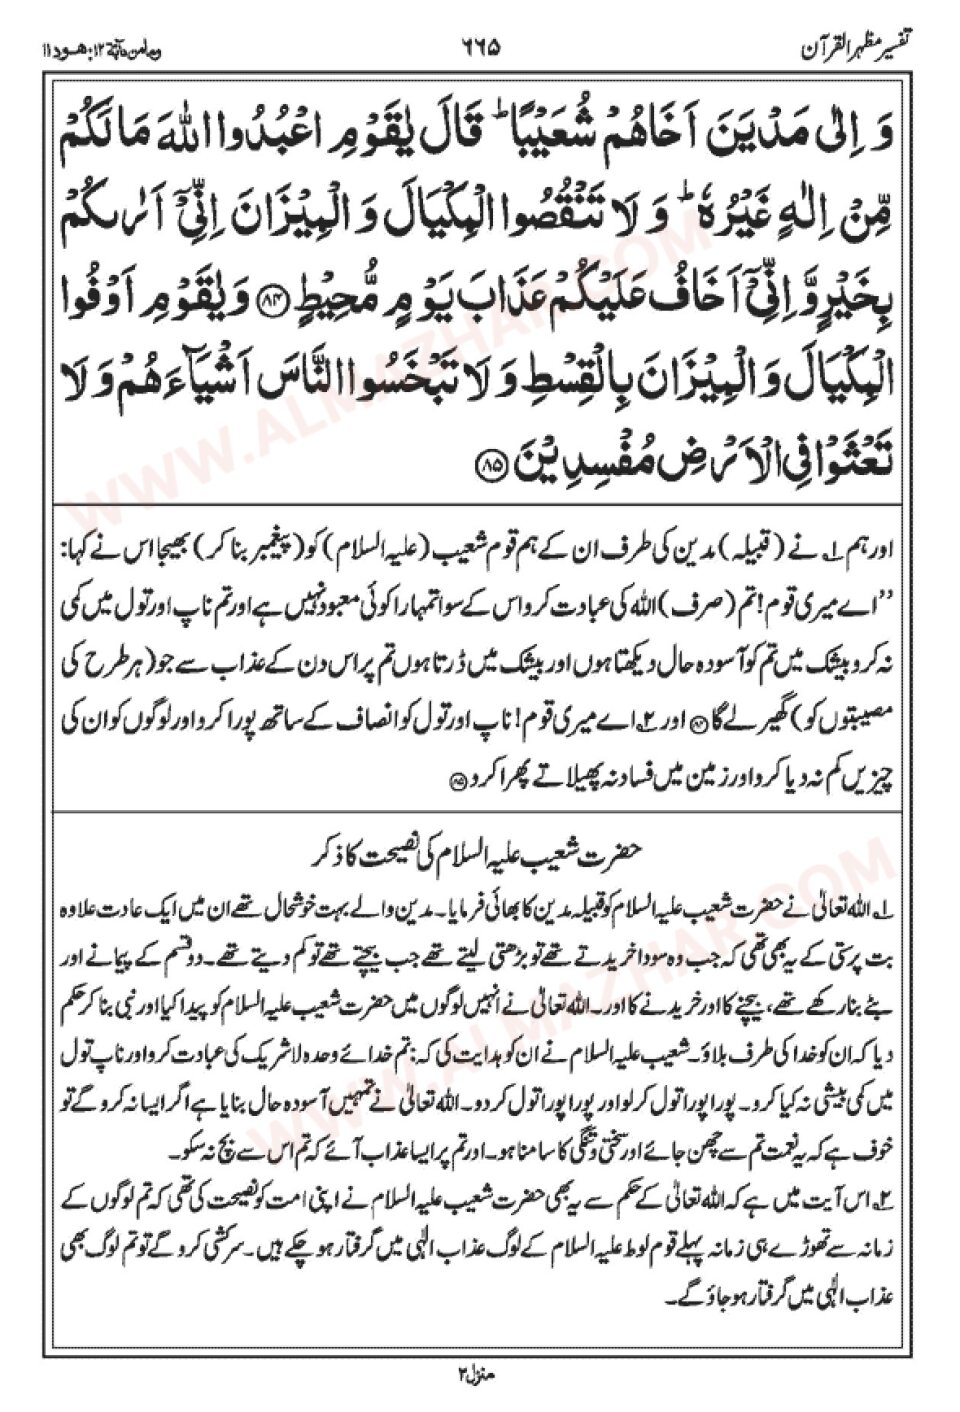 تفسیر مظہر القرآن
۶۶۵
ومامن دآبة ۱۲: ھود ۱۱
وَ اِلٰى مَدْيَنَ اَخَاهُمْ شُعَيْبًا ؕ قَالَ يٰقَوْمِ اعْبُدُوا اللّٰهَ مَا لَكُمْ
مِّنْ اِلٰهٍ غَيْرُهٗ ؕ وَ لَا تَنْقُصُوا الْمِكْيَالَ وَ الْمِيْزَانَ اِنِّيْۤ اَرٰىكُمْ
بِخَيْرٍ وَّ اِنِّيْۤ اَخَافُ عَلَيْكُمْ عَذَابَ يَوْمٍ مُّحِيْطٍ ﴿۸۴﴾ وَ يٰقَوْمِ اَوْفُوا
الْمِكْيَالَ وَ الْمِيْزَانَ بِالْقِسْطِ وَ لَا تَبْخَسُوا النَّاسَ اَشْيَآءَهُمْ وَ لَا
تَعْثَوْا فِي الْاَرْضِ مُفْسِدِيْنَ ﴿۸۵﴾
اور ہم ۱؎ نے (قبیلہ) مدین کی طرف ان کے ہم قوم شعیب (علیہ السلام) کو (پیغمبر بنا کر) بھیجا اس نے کہا:
’’اے میری قوم! تم (صرف) اللہ کی عبادت کرو اس کے سوا تمہارا کوئی معبود نہیں ہے اور تم ناپ اور تول میں کمی
نہ کرو بیشک میں تم کو آسودہ حال دیکھتا ہوں اور بیشک میں ڈرتا ہوں تم پر اس دن کے عذاب سے جو (ہر طرح کی
مصیبتوں کو) گھیر لے گا ﴿۸۴﴾ اور ۲؎ اے میری قوم! ناپ اور تول کو انصاف کے ساتھ پورا کرو اور لوگوں کو ان کی
چیزیں کم نہ دیا کرو اور زمین میں فساد نہ پھیلاتے پھرا کرو ﴿۸۵﴾
حضرت شعیب علیہ السلام کی نصیحت کا ذکر
۱؎ اللہ تعالیٰ نے حضرت شعیب علیہ السلام کو قبیلہ مدین کا بھائی فرمایا۔ مدین والے بہت خوشحال تھے ان میں ایک عادت علاوہ
بت پرستی کے یہ بھی تھی کہ جب وہ سودا خریدتے تھے تو بڑھتی لیتے تھے جب بیچتے تھے تو کم دیتے تھے۔ دو قسم کے پیمانے اور
بٹے بنا رکھے تھے، بیچنے کا اور خریدنے کا اور۔ اللہ تعالیٰ نے انہیں لوگوں میں حضرت شعیب علیہ السلام کو پیدا کیا اور نبی بنا کر حکم
دیا کہ ان کو خدا کی طرف بلاؤ۔ شعیب علیہ السلام نے ان کو ہدایت کی کہ: تم خدائے وحدہ لا شریک کی عبادت کرو اور ناپ تول
میں کمی بیشی نہ کیا کرو۔ پورا پورا تول کر لو اور پورا پورا تول کر دو۔ اللہ تعالیٰ نے تمہیں آسودہ حال بنایا ہے اگر ایسا نہ کرو گے تو
خوف ہے کہ یہ نعمت تم سے چھن جائے اور سختی و تنگی کا سامنا ہو۔ اور تم پر ایسا عذاب آئے کہ تم اس سے بچ نہ سکو۔
۲؎ اس آیت میں ہے کہ اللہ تعالیٰ کے حکم سے یہ بھی حضرت شعیب علیہ السلام نے اپنی امت کو نصیحت کی تھی کہ تم لوگوں کے
زمانہ سے تھوڑے ہی زمانہ پہلے قوم لوط علیہ السلام کے لوگ عذاب الٰہی میں گرفتار ہو چکے ہیں۔ سرکشی کرو گے تو تم لوگ بھی
عذاب الٰہی میں گرفتار ہو جاؤ گے۔
منزل ۳
WWW.ALMAZHAR.COM
WWW.ALMAZHAR.COM